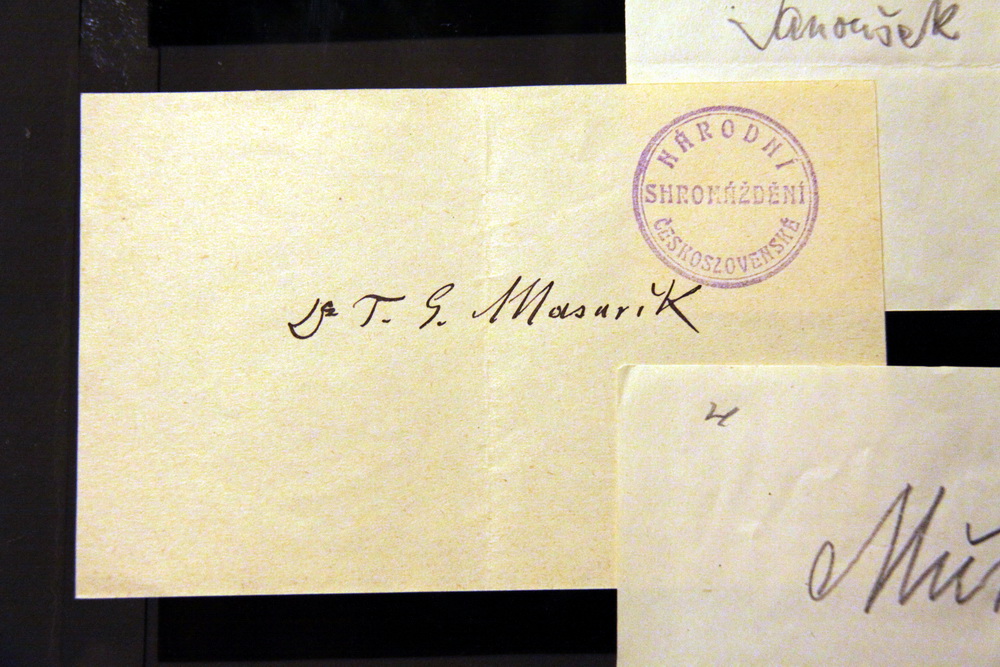 Janoušek
NÁRODNÍ
SHROMÁŽDĚNÍ
ČESKOSLOVENSKÉ
Dr T. G. Masařík
4